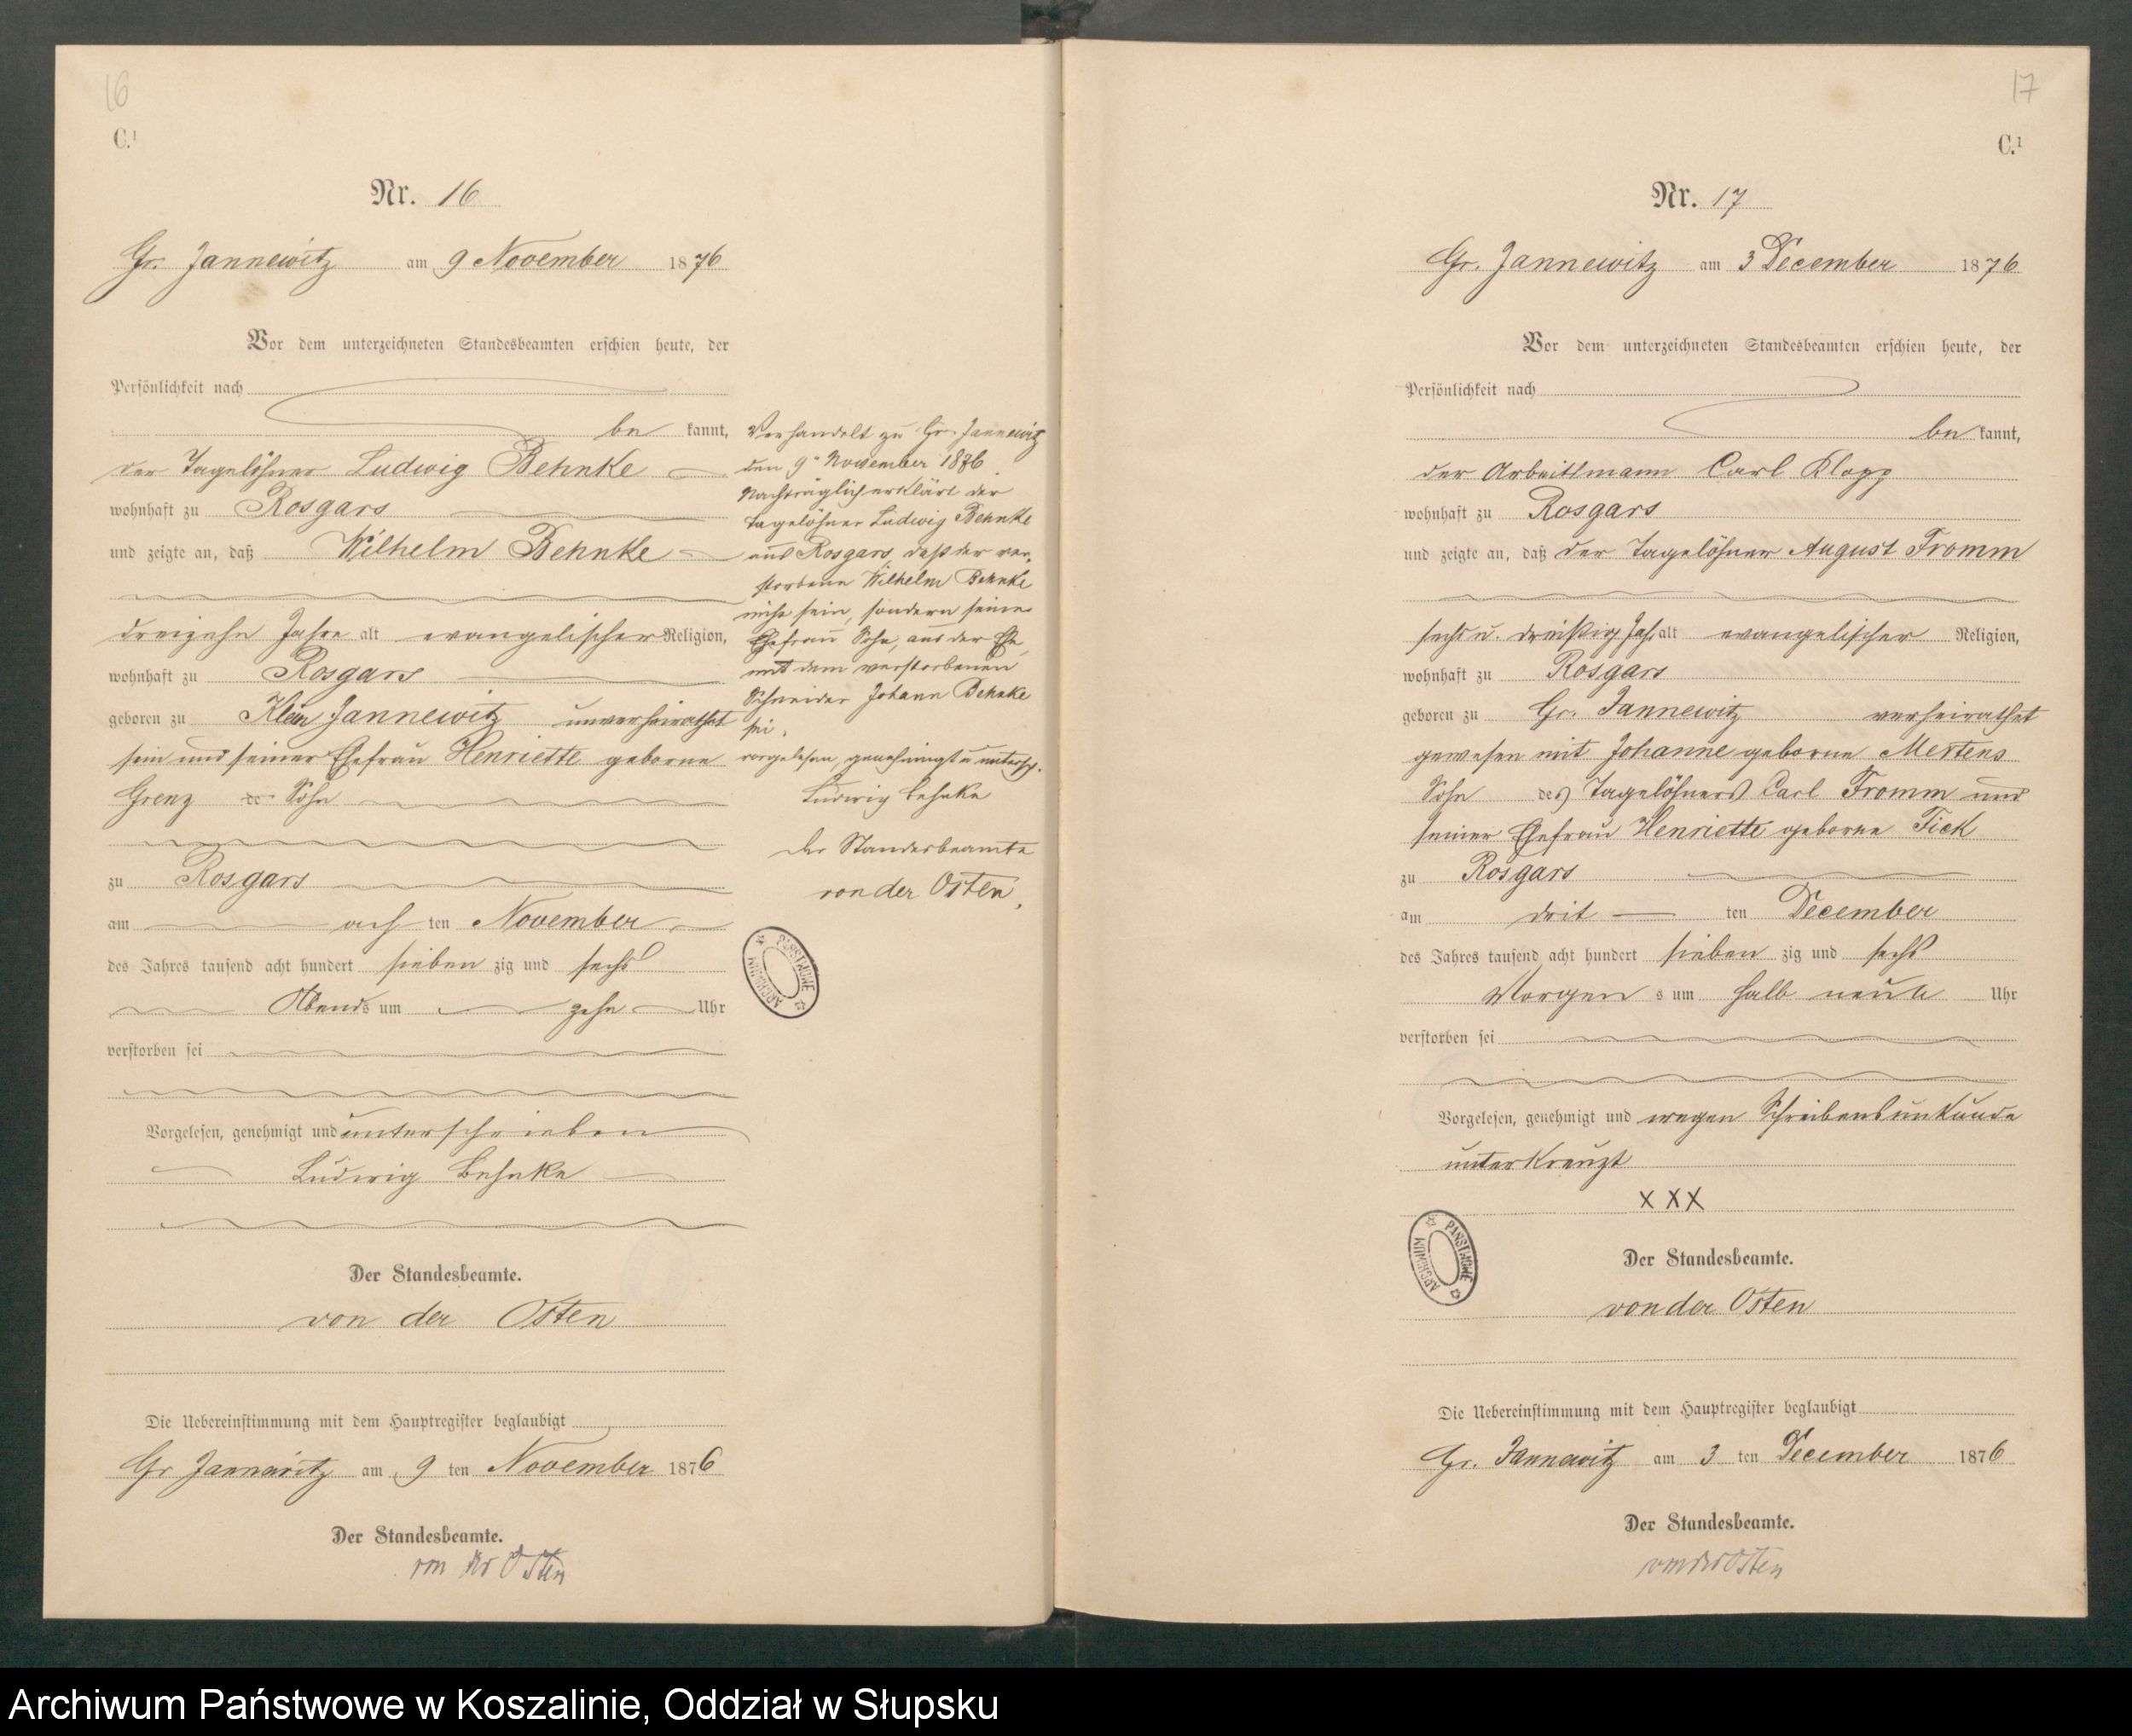 16
C.¹
Nr. 16
Gr. Jannewitz am 9 November 1876
Vor dem unterzeichneten Standesbeamten erschien heute, der
Persönlichkeit nach
be kannt,
der Tagelöhner Ludwig Behnke
wohnhaft zu Rosgars
und zeigte an, daß Wilhelm Behnke
dreizehn Jahre alt evangelischer Religion,
wohnhaft zu Rosgars
geboren zu Klein Jannewitz unverheirathet
sein und seiner Ehefrau Henriette geborne
Grenz de Sohn
zu Rosgars
am ach ten November
des Jahres tausend acht hundert sieben zig und sechs
Abends um zehn Uhr
verstorben sei
Vorgelesen, genehmigt und unterschrieben
Ludwig Behnke
Der Standesbeamte.
von der Osten
Die Uebereinstimmung mit dem Hauptregister beglaubigt
Gr Jannewitz am 9 ten November 1876
Der Standesbeamte.
von der Osten
Verhandelt zu Gr. Jannewitz
den 9ⁿ November 1876.
Nachträglich erklärt der
Tagelöhner Ludwig Behnke
aus Rosgars, daß der ver-
storbene Wilhelm Behnke
nicht sein, sondern seiner
Ehefrau Sohn, aus der Ehe
mit dem verstorbenen
Schneider Johann Behnke
sei.
vorgelesen, genehmigt u untersch.
Ludwig Behnke
Der Standesbeamte
von der Osten.
PAŃSTWOWE ARCHIWUM
17
C.¹
Nr. 17
Gr. Jannewitz am 3 December 1876
Vor dem unterzeichneten Standesbeamten erschien heute, der
Persönlichkeit nach
be kannt,
der Arbeitsmann Carl Klopp
wohnhaft zu Rosgars
und zeigte an, daß der Tagelöhner August Fromm
sechs u. dreißig Jahr alt evangelischer Religion,
wohnhaft zu Rosgars
geboren zu Gr. Jannewitz verheirathet
gewesen mit Johanne geborne Mertens
Sohn des Tagelöhners Carl Fromm und
seiner Ehefrau Henriette geborne Fick
zu Rosgars
am drit ten December
des Jahres tausend acht hundert sieben zig und sechs
Morgen s um halb neun Uhr
verstorben sei
Vorgelesen, genehmigt und wegen Schreibensunkunde
unterkreuzt
XXX
PAŃSTWOWE ARCHIWUM
Der Standesbeamte.
von der Osten
Die Uebereinstimmung mit dem Hauptregister beglaubigt
Gr. Jannewitz am 3 ten December 1876
Der Standesbeamte.
von der Osten
Archiwum Państwowe w Koszalinie, Oddział w Słupsku